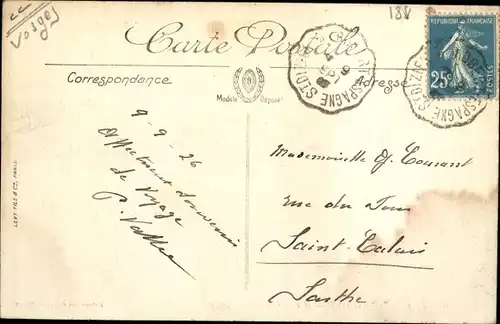 cc
Vosges
188
Carte Postale
RÉPUBLIQUE FRANÇAISE
25c
POSTES
Correspondance
Adresse
Modèle Déposé
REVESPAGNE ST DIZIER
9-9-26
Affectueux souvenirs
de voyage
P. Vallée
Mademoiselle G. Courant
rue du Four
Saint-Calais
Sarthe
LEVY FILS & CIE, PARIS.